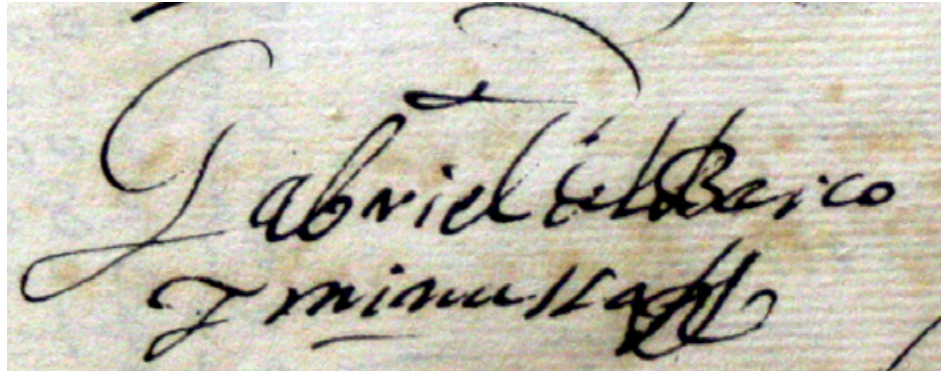 Gabriel del Barco
y minuskah